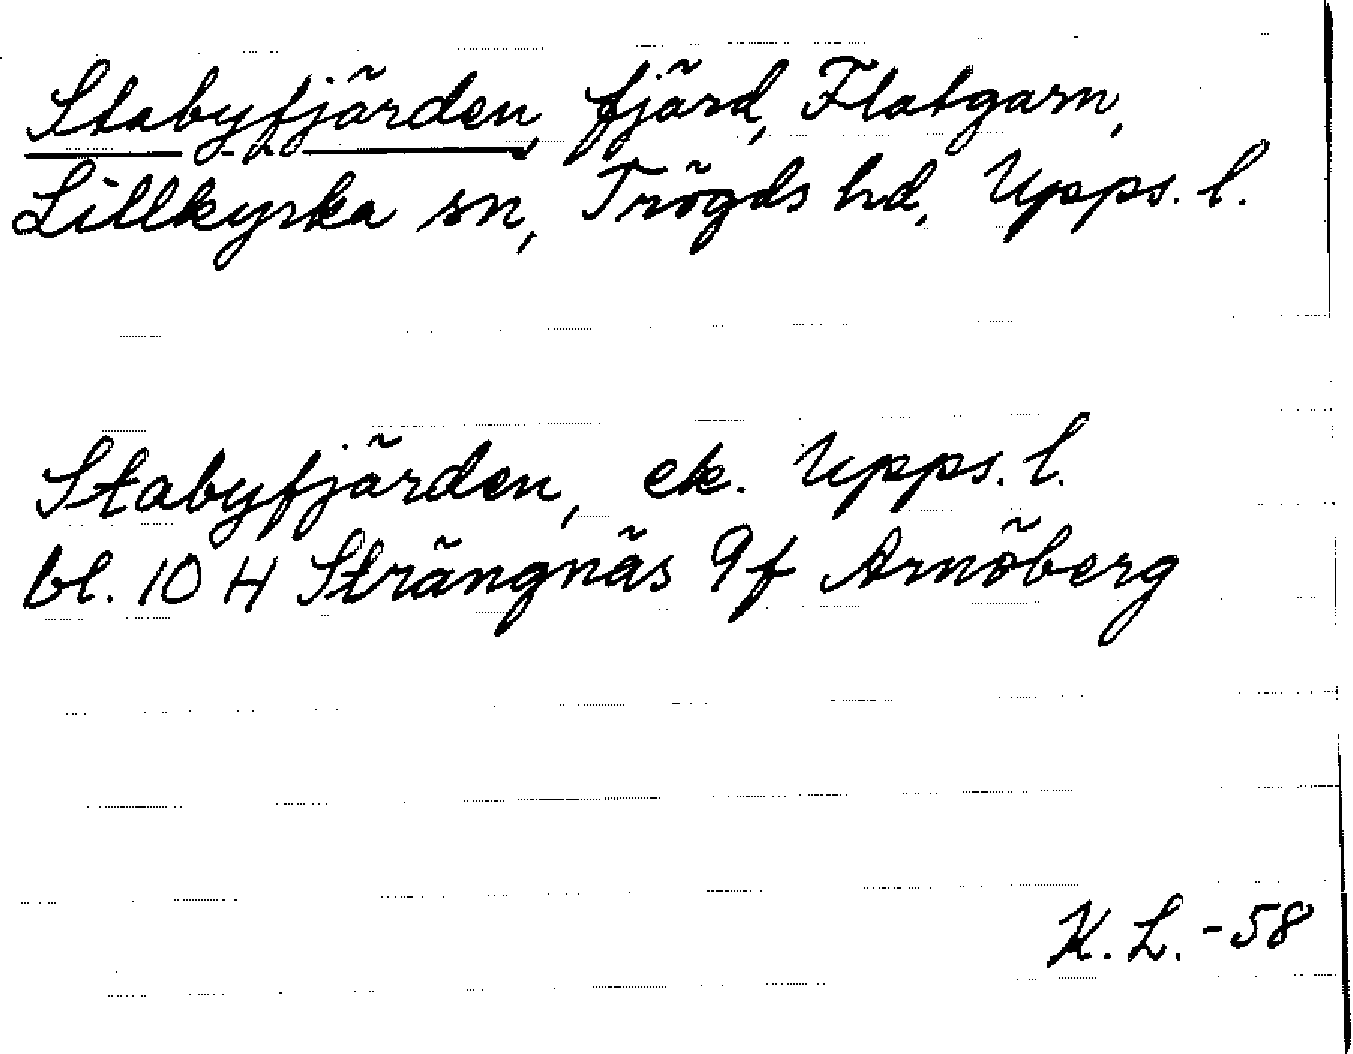 Stabyfjärden, fjärd, Flatgarn,
Lillkyrka sn, Trögds hd, Upps. l.
Stabyfjärden, ek. Upps. l.
bl. 10 H Strängnäs 9f Arnöberg
K. L. -58